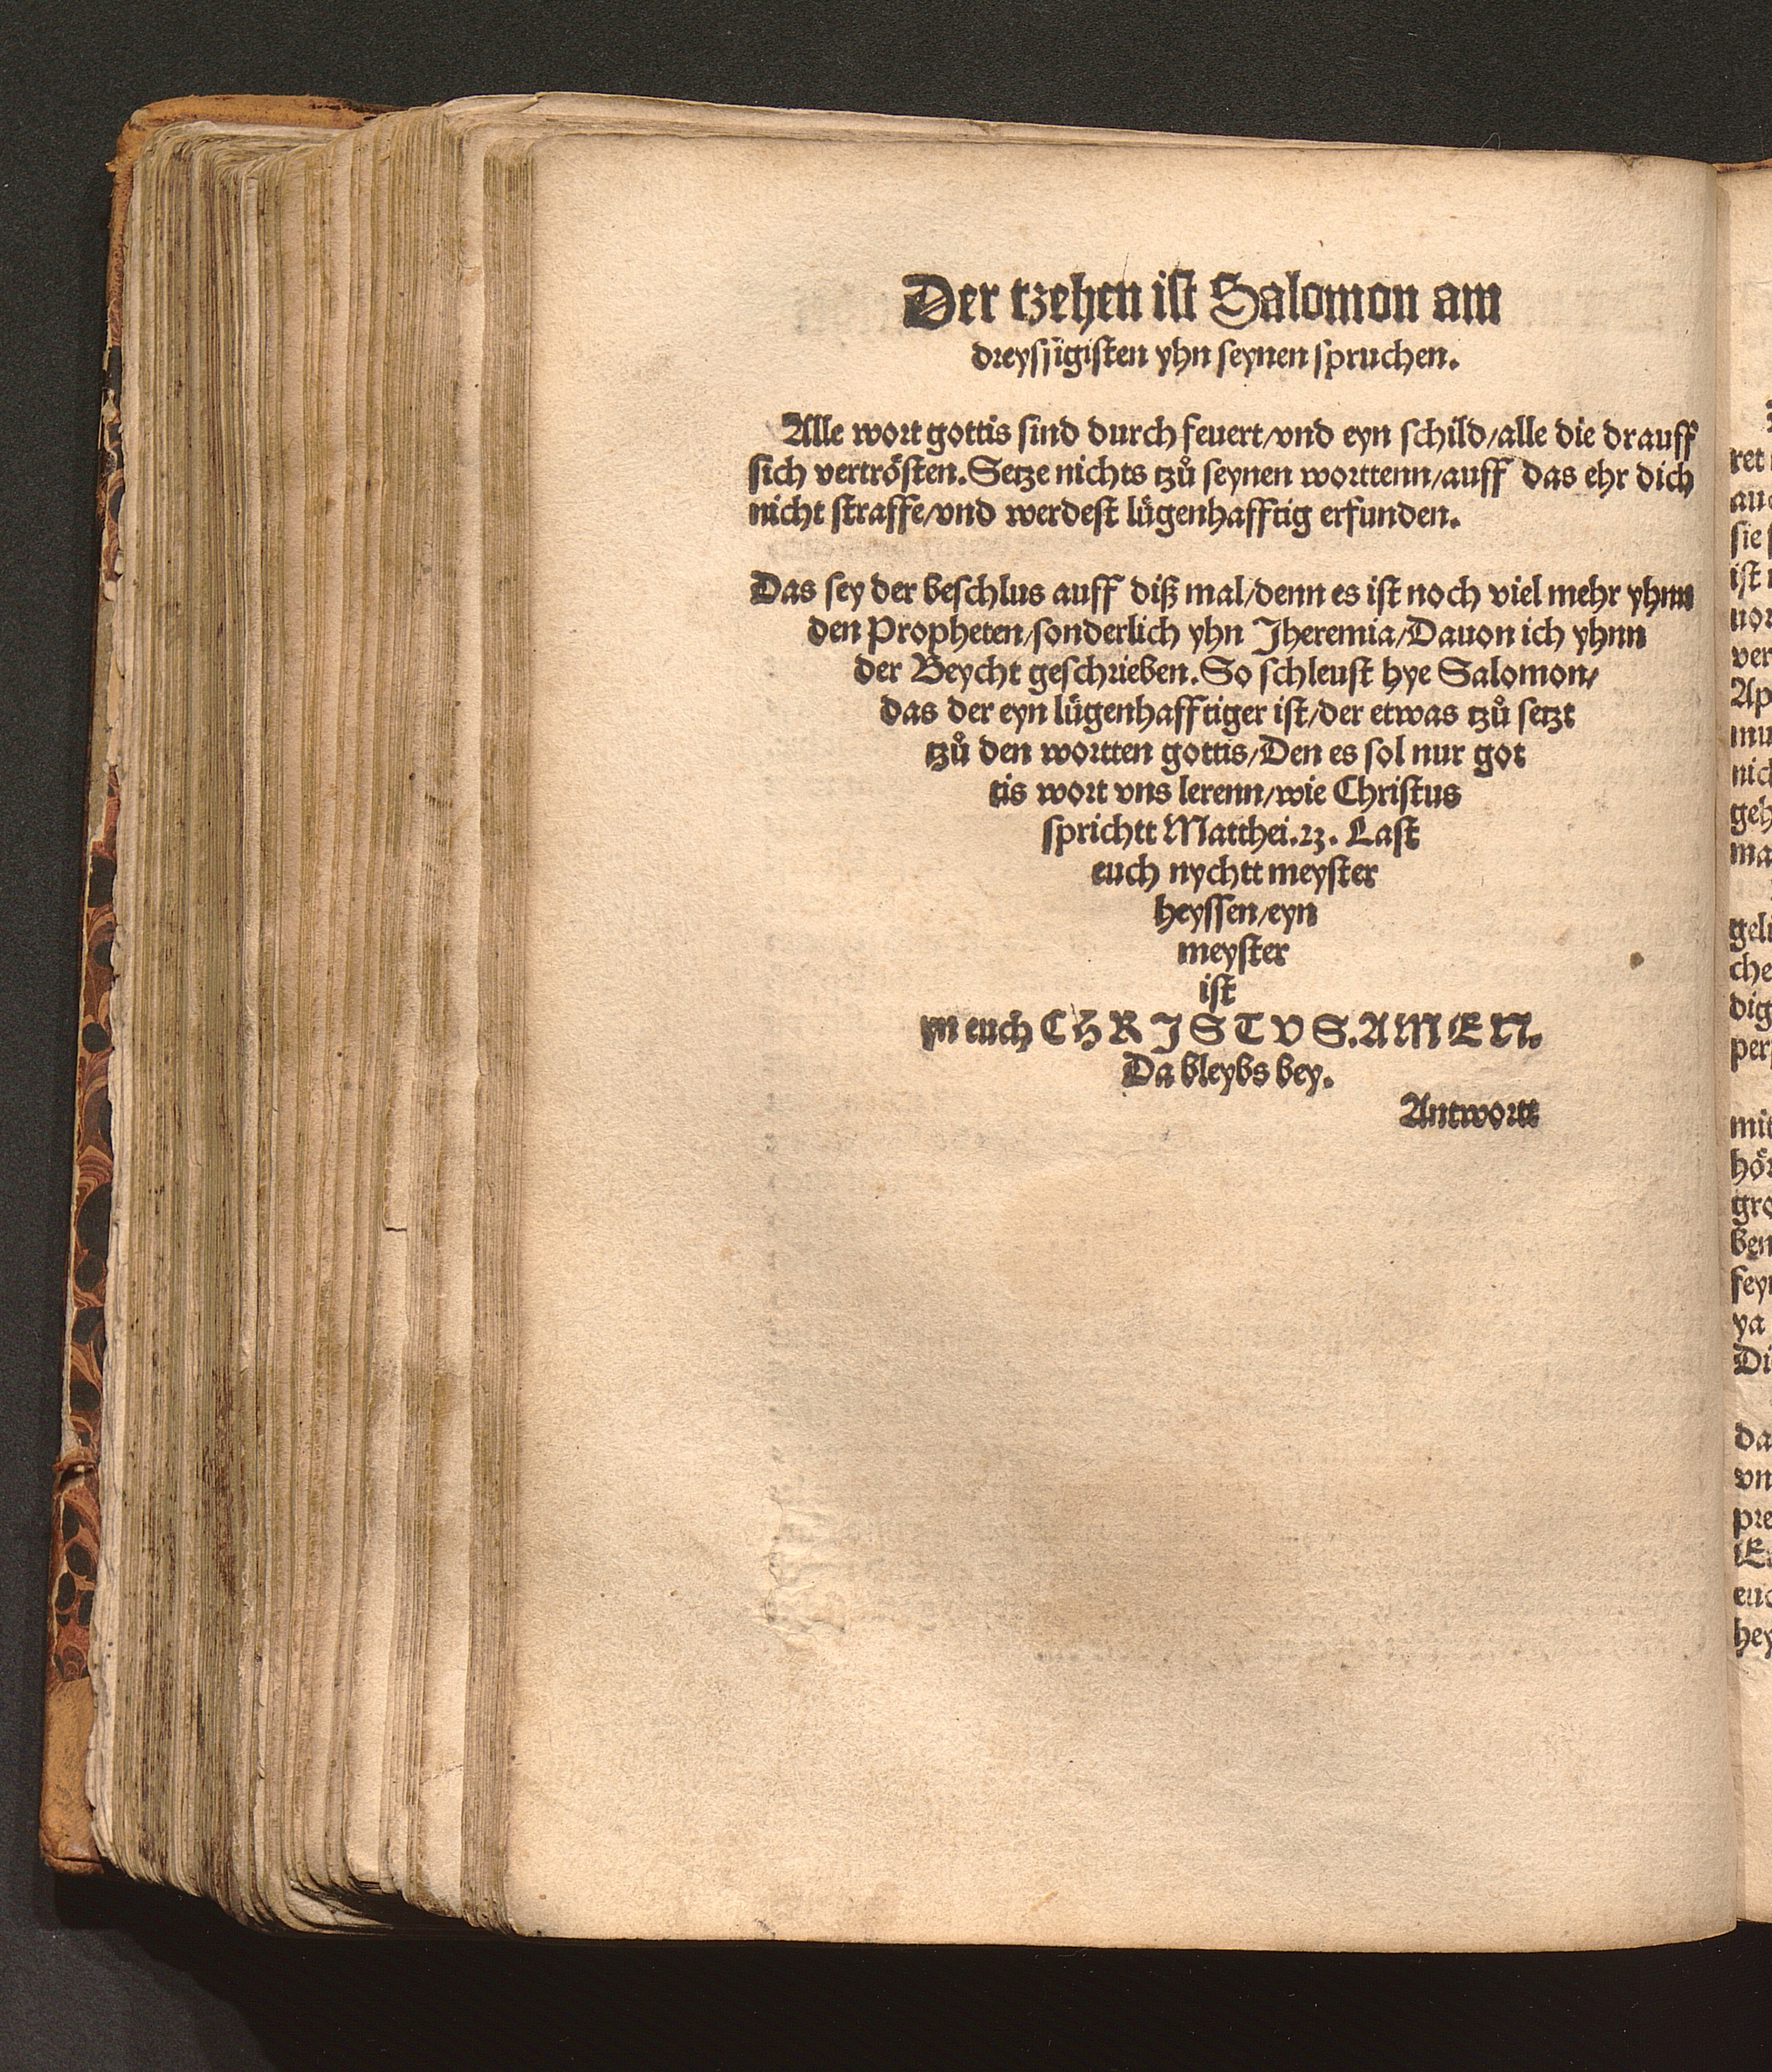 Der tzehen ist Salomon am
dreyssigisten yhn seynen spruchen.
Alle wort gottis sind durch feuert/vnd eyn schild/alle die drauff
sich vertrösten. Setze nichts tzů seynen worttenn/auff das ehr dich
nicht straffe/vnd werdest lügenhafftig erfunden.
Das sey der beschlus auff diß mal/denn es ist noch viel mehr yhnn
den Propheten/sonderlich yhn Jheremia/Dauon ich yhnn
der Beycht geschrieben. So schleust hye Salomon/
das der eyn lügenhafftiger ist/der etwas tzů setzt
tzů den wortten gottis/Den es sol nur got
tis wort vns lerenn/wie Christus
sprichtt Matthei.23. Last
euch nychtt meyster
heyssen/eyn
meyster
ist
yn euch CHRISTVS.AMEN.
Da bleybs bey.
Antwortt
ret
auc
sie
ist
uor
ver
Ap
mu
nich
geh
ma
geli
che
dig
per
mit
hör
gro
ben
sey
ya
Di
da
vn
pre
euc
hey